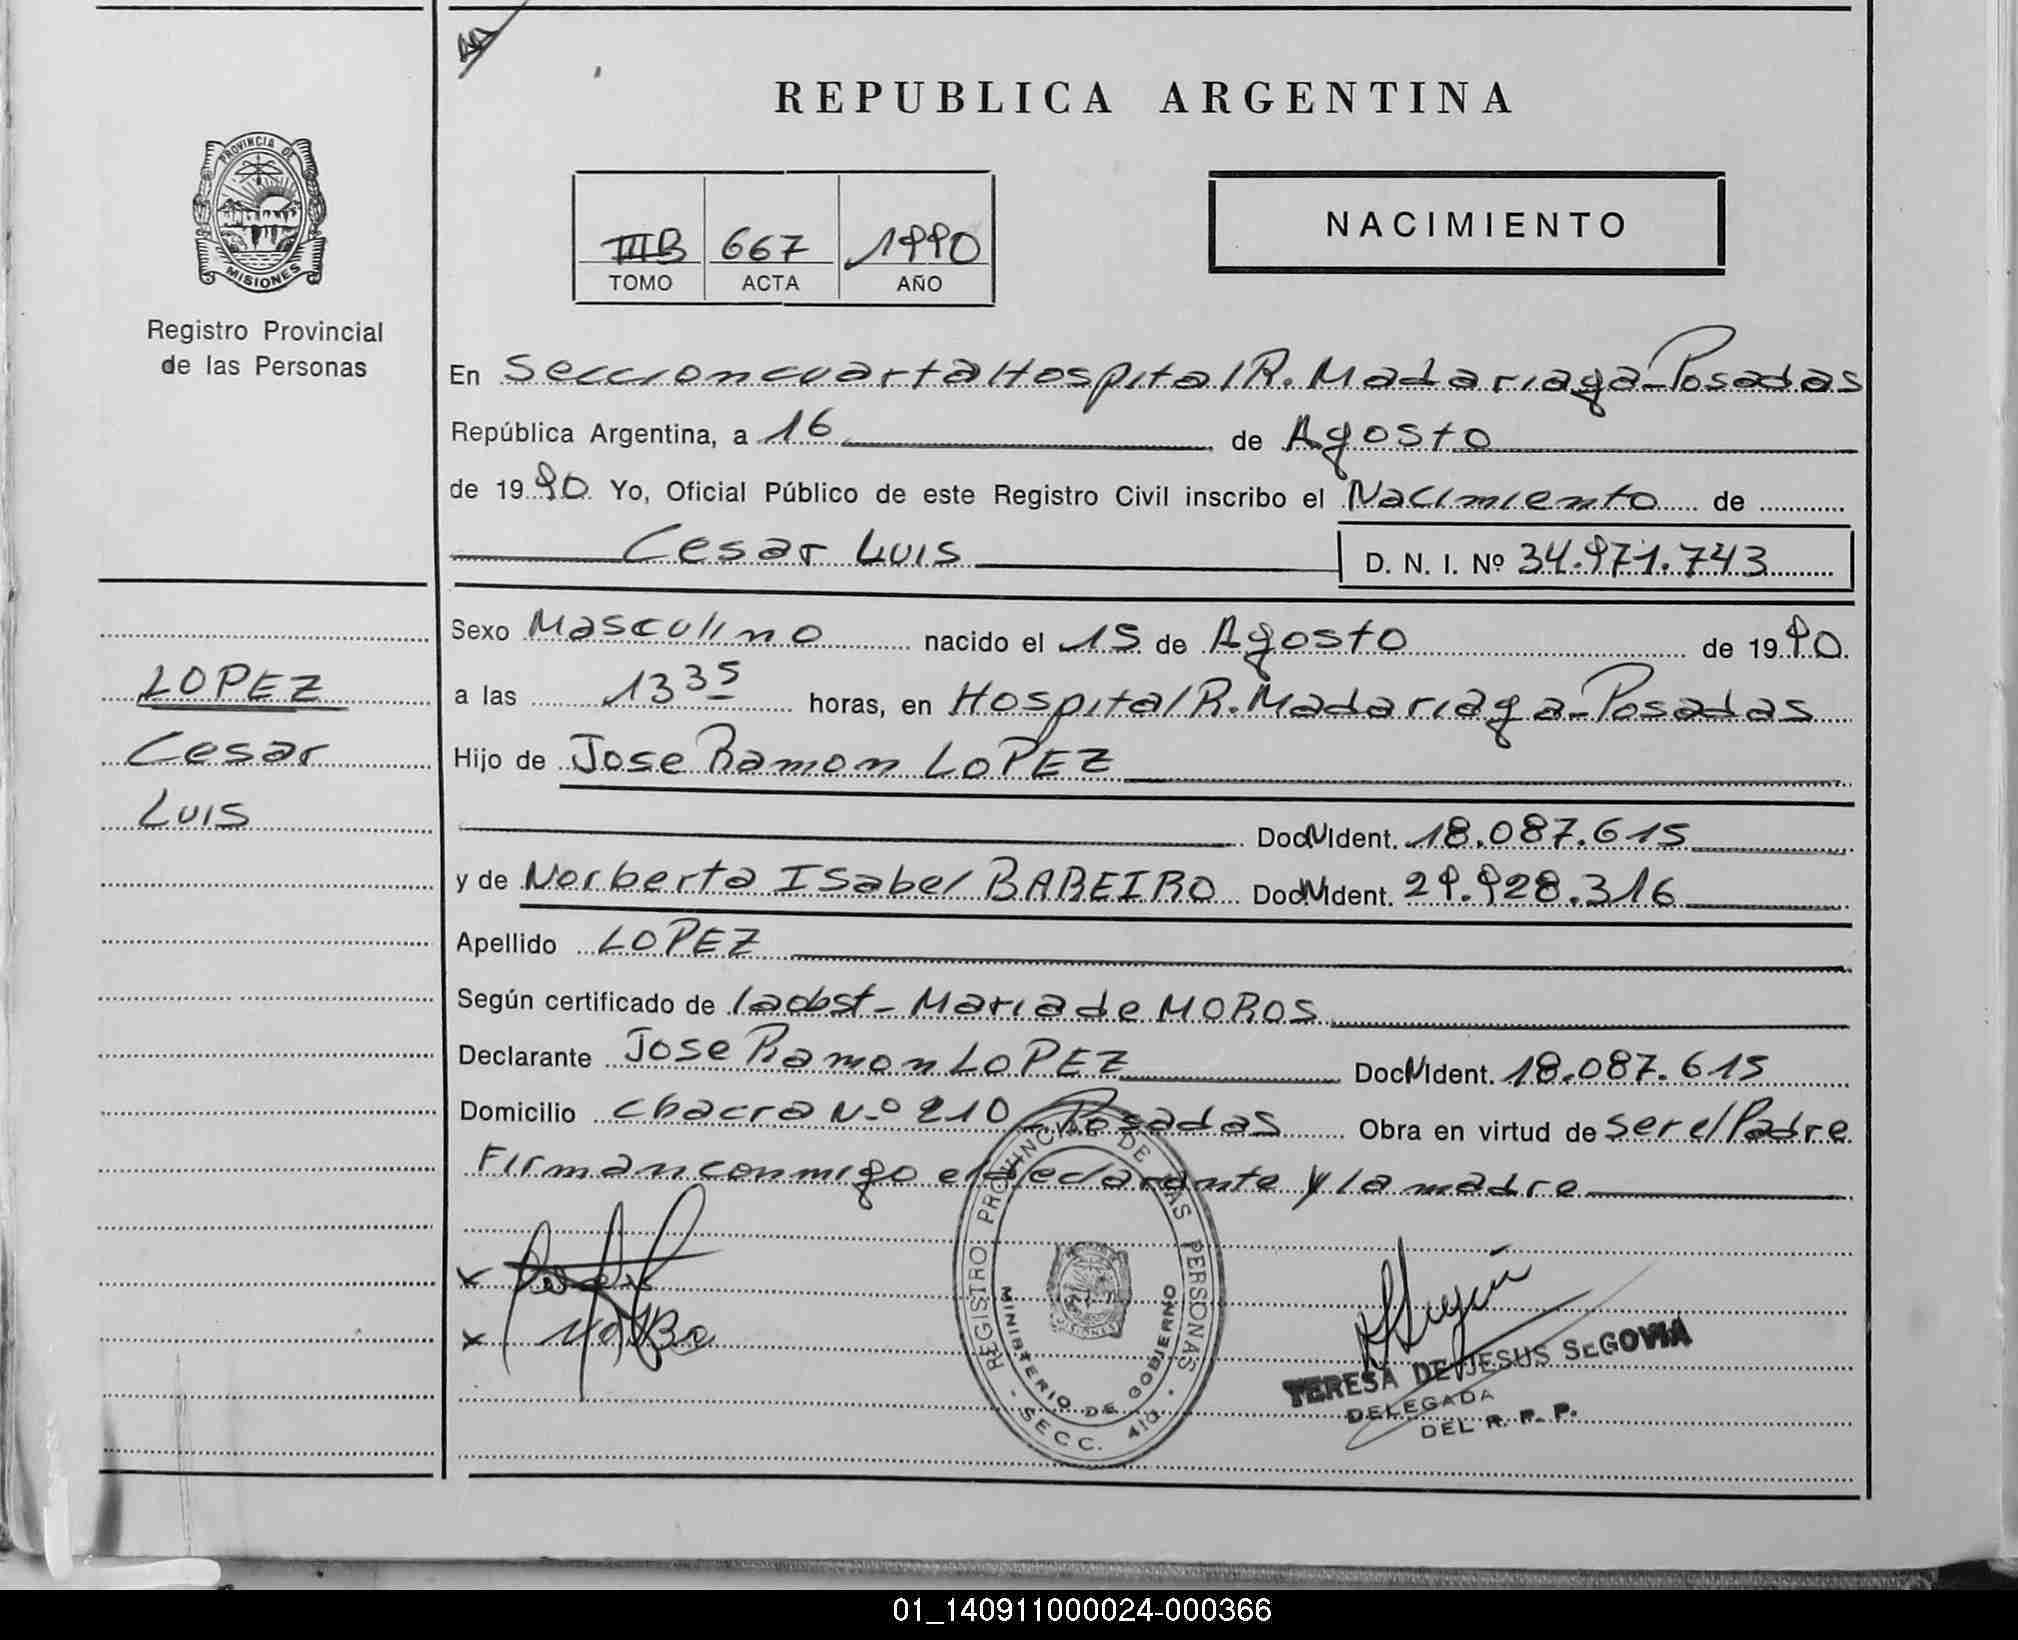 REPUBLICA ARGENTINA
PROVINCIA DE
MISIONES
Registro Provincial
de las Personas
IIIB 667 1990
TOMO ACTA AÑO
NACIMIENTO
En Seccion cuarta Hospital R. Madariaga - Posadas
República Argentina, a 16 de Agosto
de 1990 Yo, Oficial Público de este Registro Civil inscribo el Nacimiento de
Cesar Luis D. N. I. Nº 34.971.743
Sexo Masculino nacido el 15 de Agosto de 1990
LOPEZ
Cesar
Luis
a las 13 35 horas, en Hospital R. Madariaga - Posadas
Hijo de Jose Ramon LOPEZ
Doc. Ident. 18.087.615
y de Norberta Isabel BAREIRO Doc. Ident. 29.928.316
Apellido LOPEZ
Según certificado de la obst - Maria de MOROS
Declarante Jose Ramon LOPEZ Doc. Ident. 18.087.615
Domicilio chacra Nº 210 - Posadas Obra en virtud de ser el Padre
Firman conmigo el declarante y la madre
REGISTRO PROVINCIAL DE LAS PERSONAS
MINISTERIO DE GOBIERNO
SECC. 4ta.
TERESA DE JESUS SEGOVIA
DELEGADA
DEL R. P. P.
01_140911000024-000366